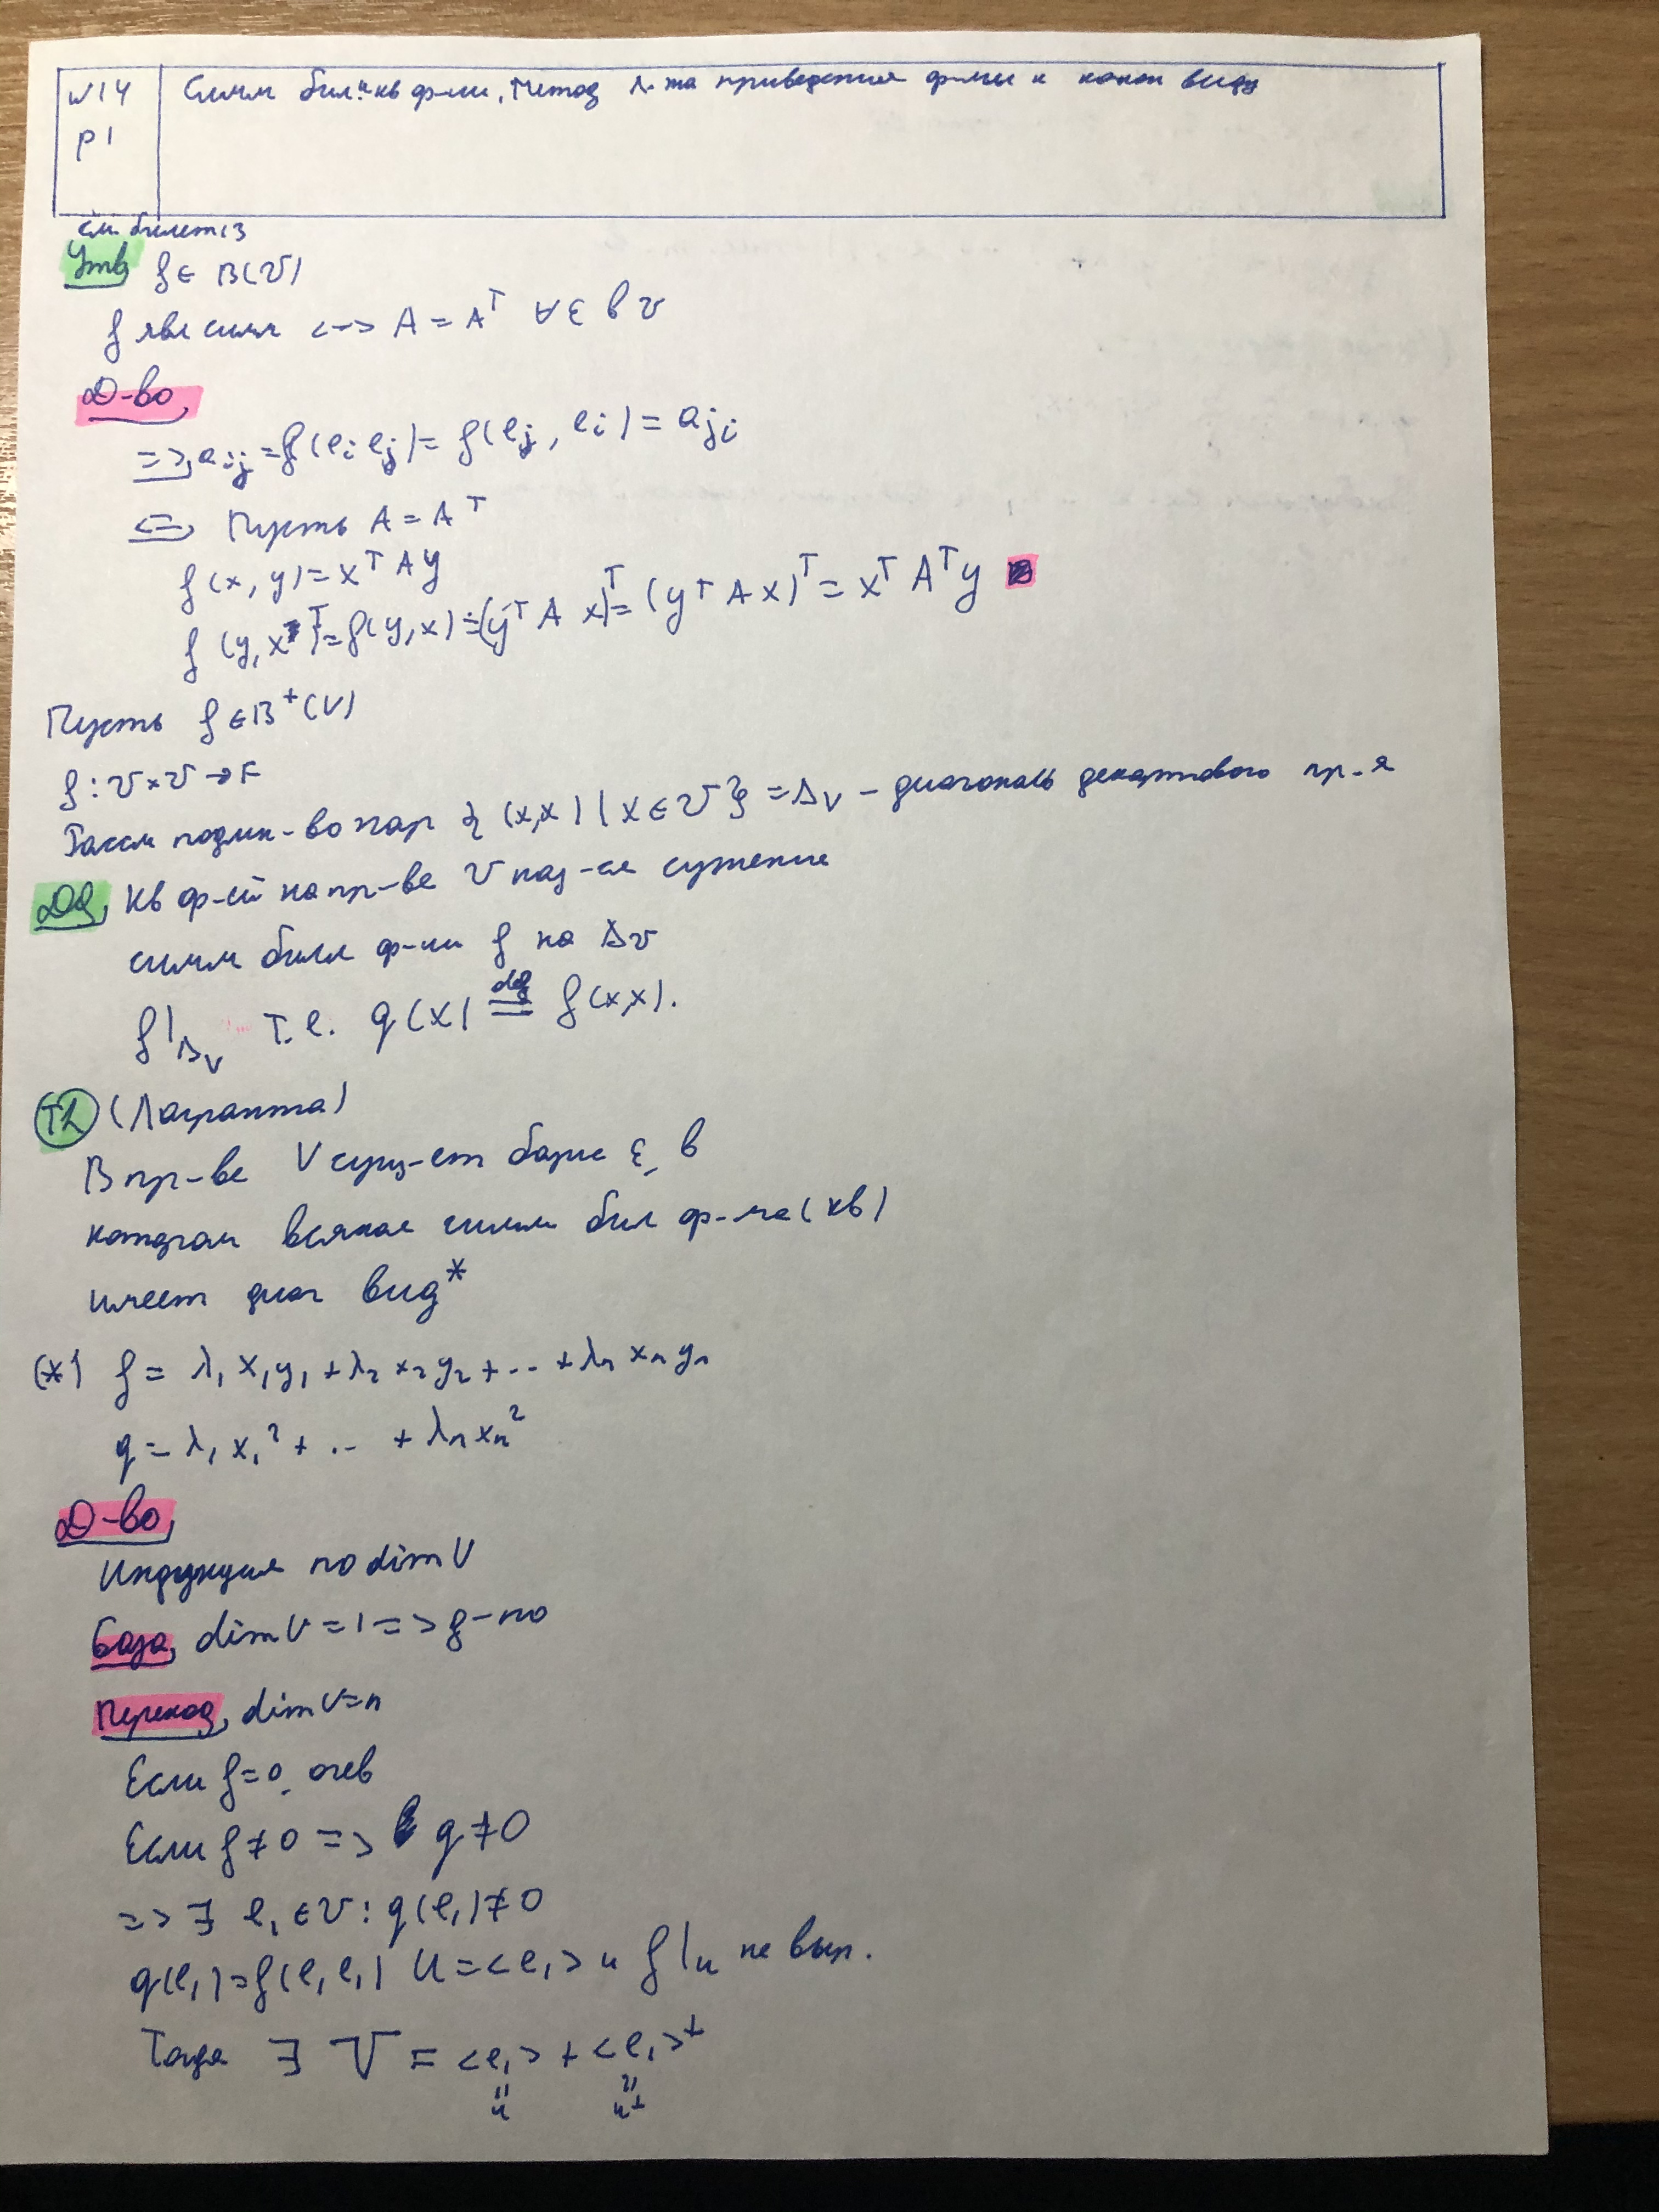 №14
p1
Симм бил и кв ф-ии, Метод Л-жа приведения ф-мы к канон виду
см. билет 13
Утв f ∈ B(V)
f явл симм <-> A = Aᵀ ∀ε в V
Д-во
=> aᵢⱼ = f(eᵢ eⱼ) = f(eⱼ, eᵢ) = aⱼᵢ
<= Пусть A = Aᵀ
f(x, y) = xᵀ A y
f(y, x)ᵀ = f(y, x) = (yᵀ A x)ᵀ = (yᵀ A x)ᵀ = xᵀ Aᵀ y
Пусть f ∈ B⁺(V)
f : V × V → F
Рассм подмн-во пар {(x,x) | x ∈ V} = Δ_V – диагональ декартового пр-я
Df Кв ф-ей на пр-ве V наз-ся сужение
симм билл ф-ии f на Δ_V
f|Δ_V т.е. q(x) def= f(x,x).
T1 (Лагранжа)
В пр-ве V сущ-ет базис ε, в
котором всякая симм бил ф-ма (кв)
имеет диаг вид*
(*) f = λ₁x₁y₁ + λ₂x₂y₂ + ... + λₙxₙyₙ
q = λ₁x₁² + ... + λₙxₙ²
Д-во
Индукция по dim V
База, dim V = 1 => g-но
Переход, dim V = n
Если f = 0, очев
Если f ≠ 0 => q ≠ 0
=> ∃ e₁ ∈ V : q(e₁) ≠ 0
q(e₁) = f(e₁ e₁) U = <e₁> и f|u не выр.
Тогда ∃ V = <e₁> + <e₁>⊥
" "
u u⊥